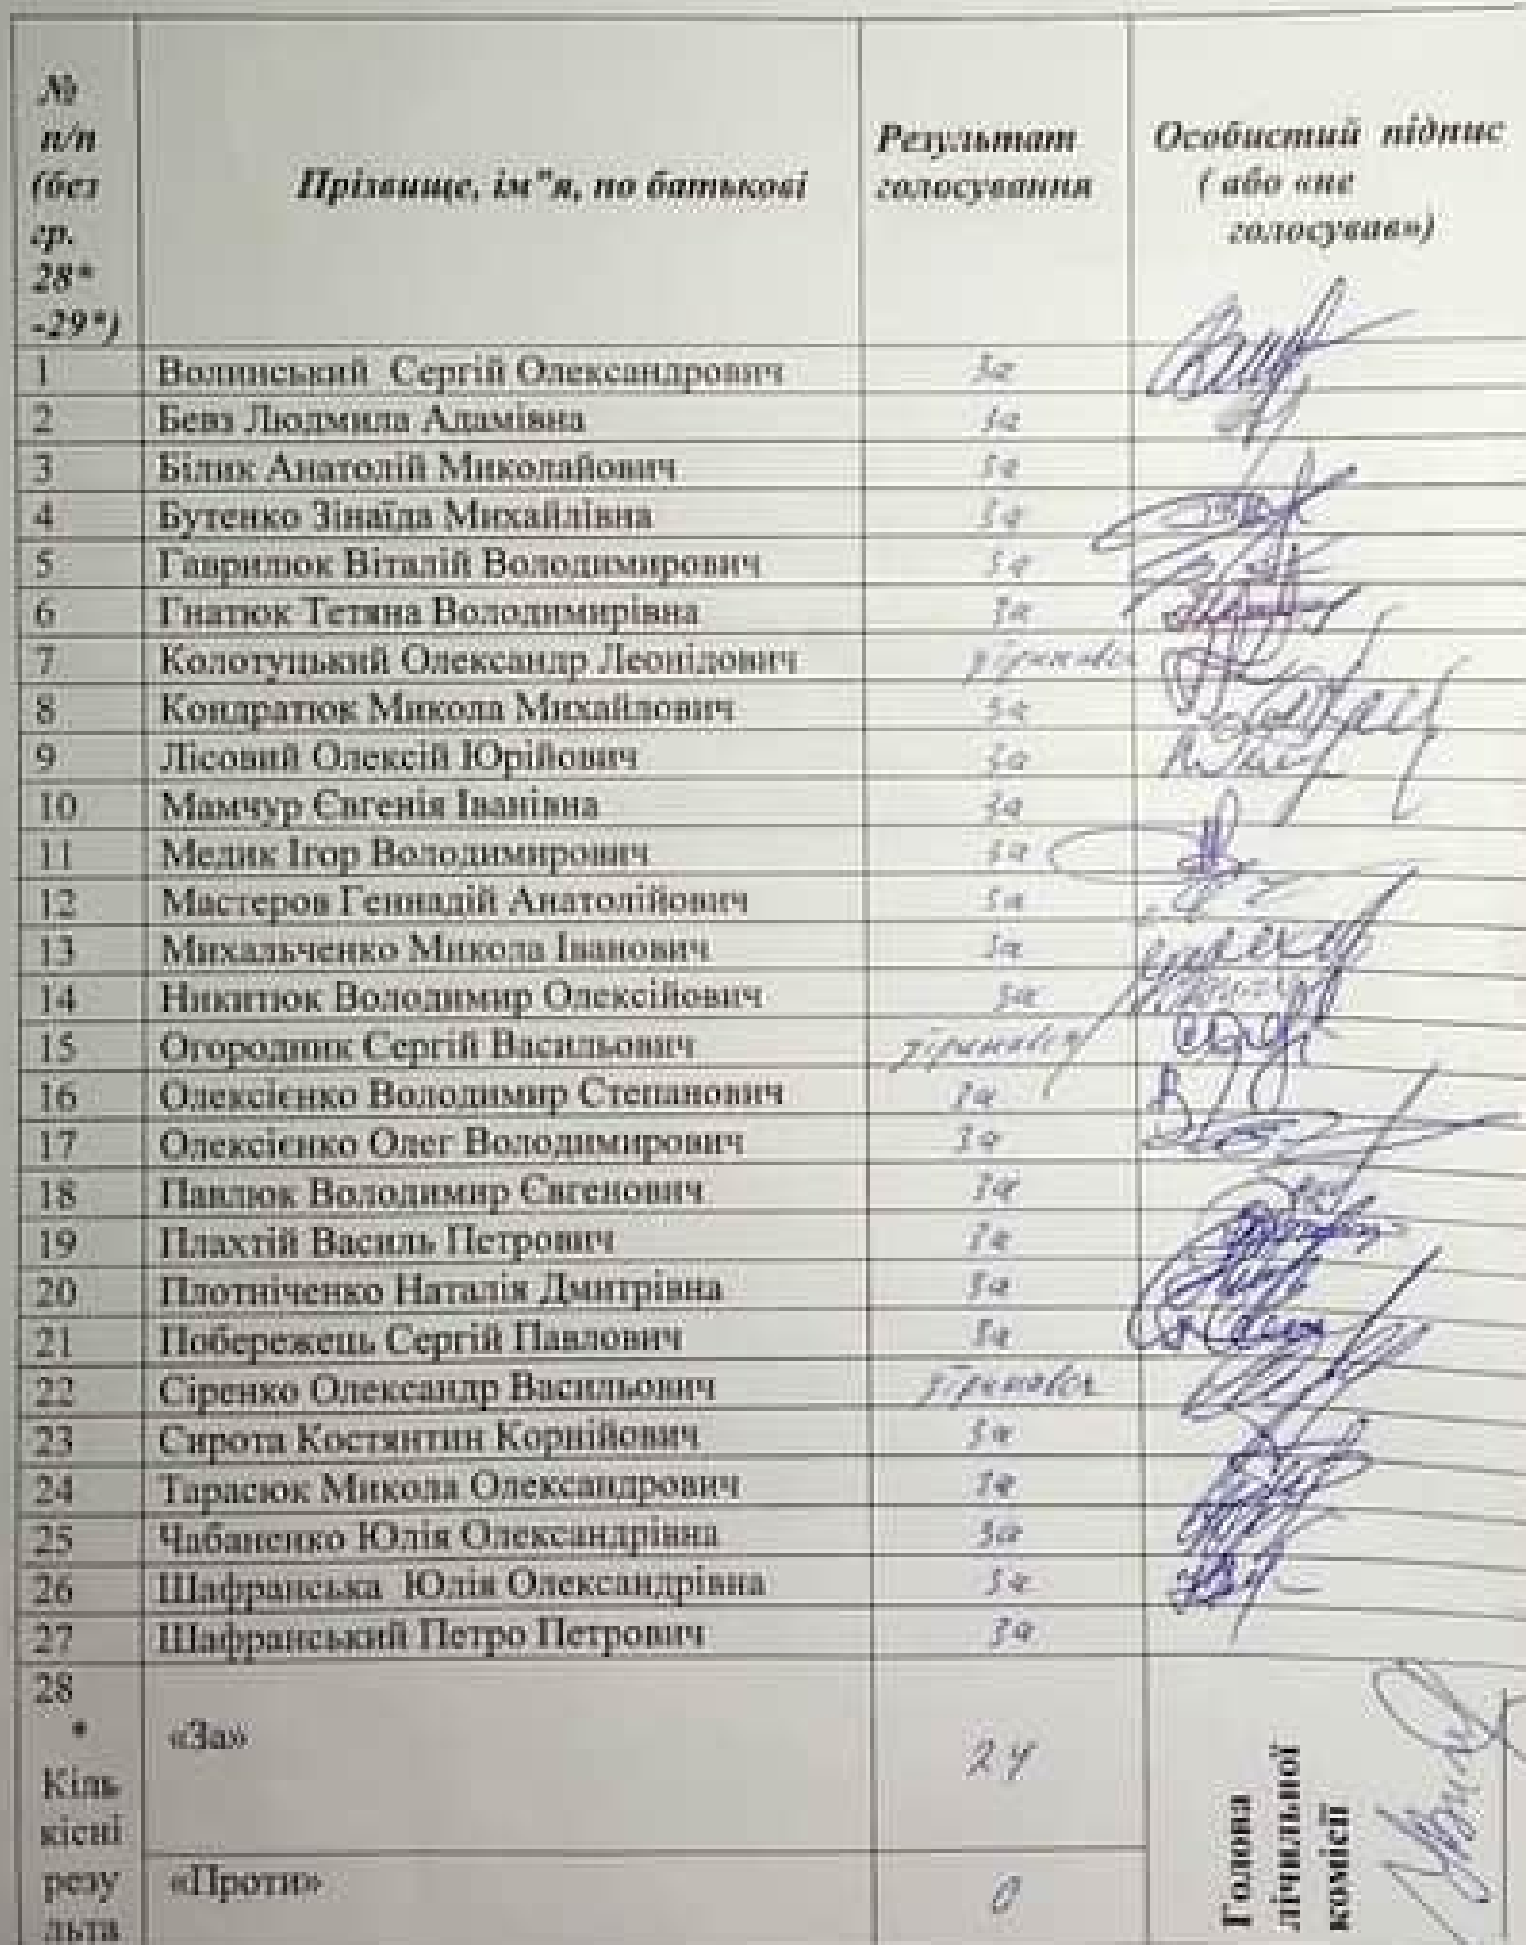 №
п/п
(без
гр.
28*
-29*)
Прізвище, ім"я, по батькові
Результат
голосування
Особистий підпис
( або «не
голосував»)
1 Волинський Сергій Олександрович За
2 Бевз Людмила Адамівна за
3 Білик Анатолій Миколайович за
4 Бутенко Зінаїда Михайлівна за
5 Гаврилюк Віталій Володимирович за
6 Гнатюк Тетяна Володимирівна за
7 Колотуцький Олександр Леонідович
8 Кондратюк Микола Михайлович за
9 Лісовий Олексій Юрійович за
10 Мамчур Євгенія Іванівна за
11 Медик Ігор Володимирович за
12 Мастеров Геннадій Анатолійович за
13 Михальченко Микола Іванович за
14 Никитюк Володимир Олексійович за
15 Огородник Сергій Васильович
16 Олексієнко Володимир Степанович за
17 Олексієнко Олег Володимирович за
18 Павлюк Володимир Євгенович за
19 Плахтій Василь Петрович за
20 Плотніченко Наталія Дмитрівна за
21 Побережець Сергій Павлович за
22 Сіренко Олександр Васильович
23 Сирота Костянтин Корнійович за
24 Тарасюк Микола Олександрович за
25 Чабаненко Юлія Олександрівна за
26 Шафранська Юлія Олександрівна за
27 Шафранський Петро Петрович за
28
*
Кіль
кісні
резу
льта
«За» 24
«Проти» 0
Голова
лічильної
комісії